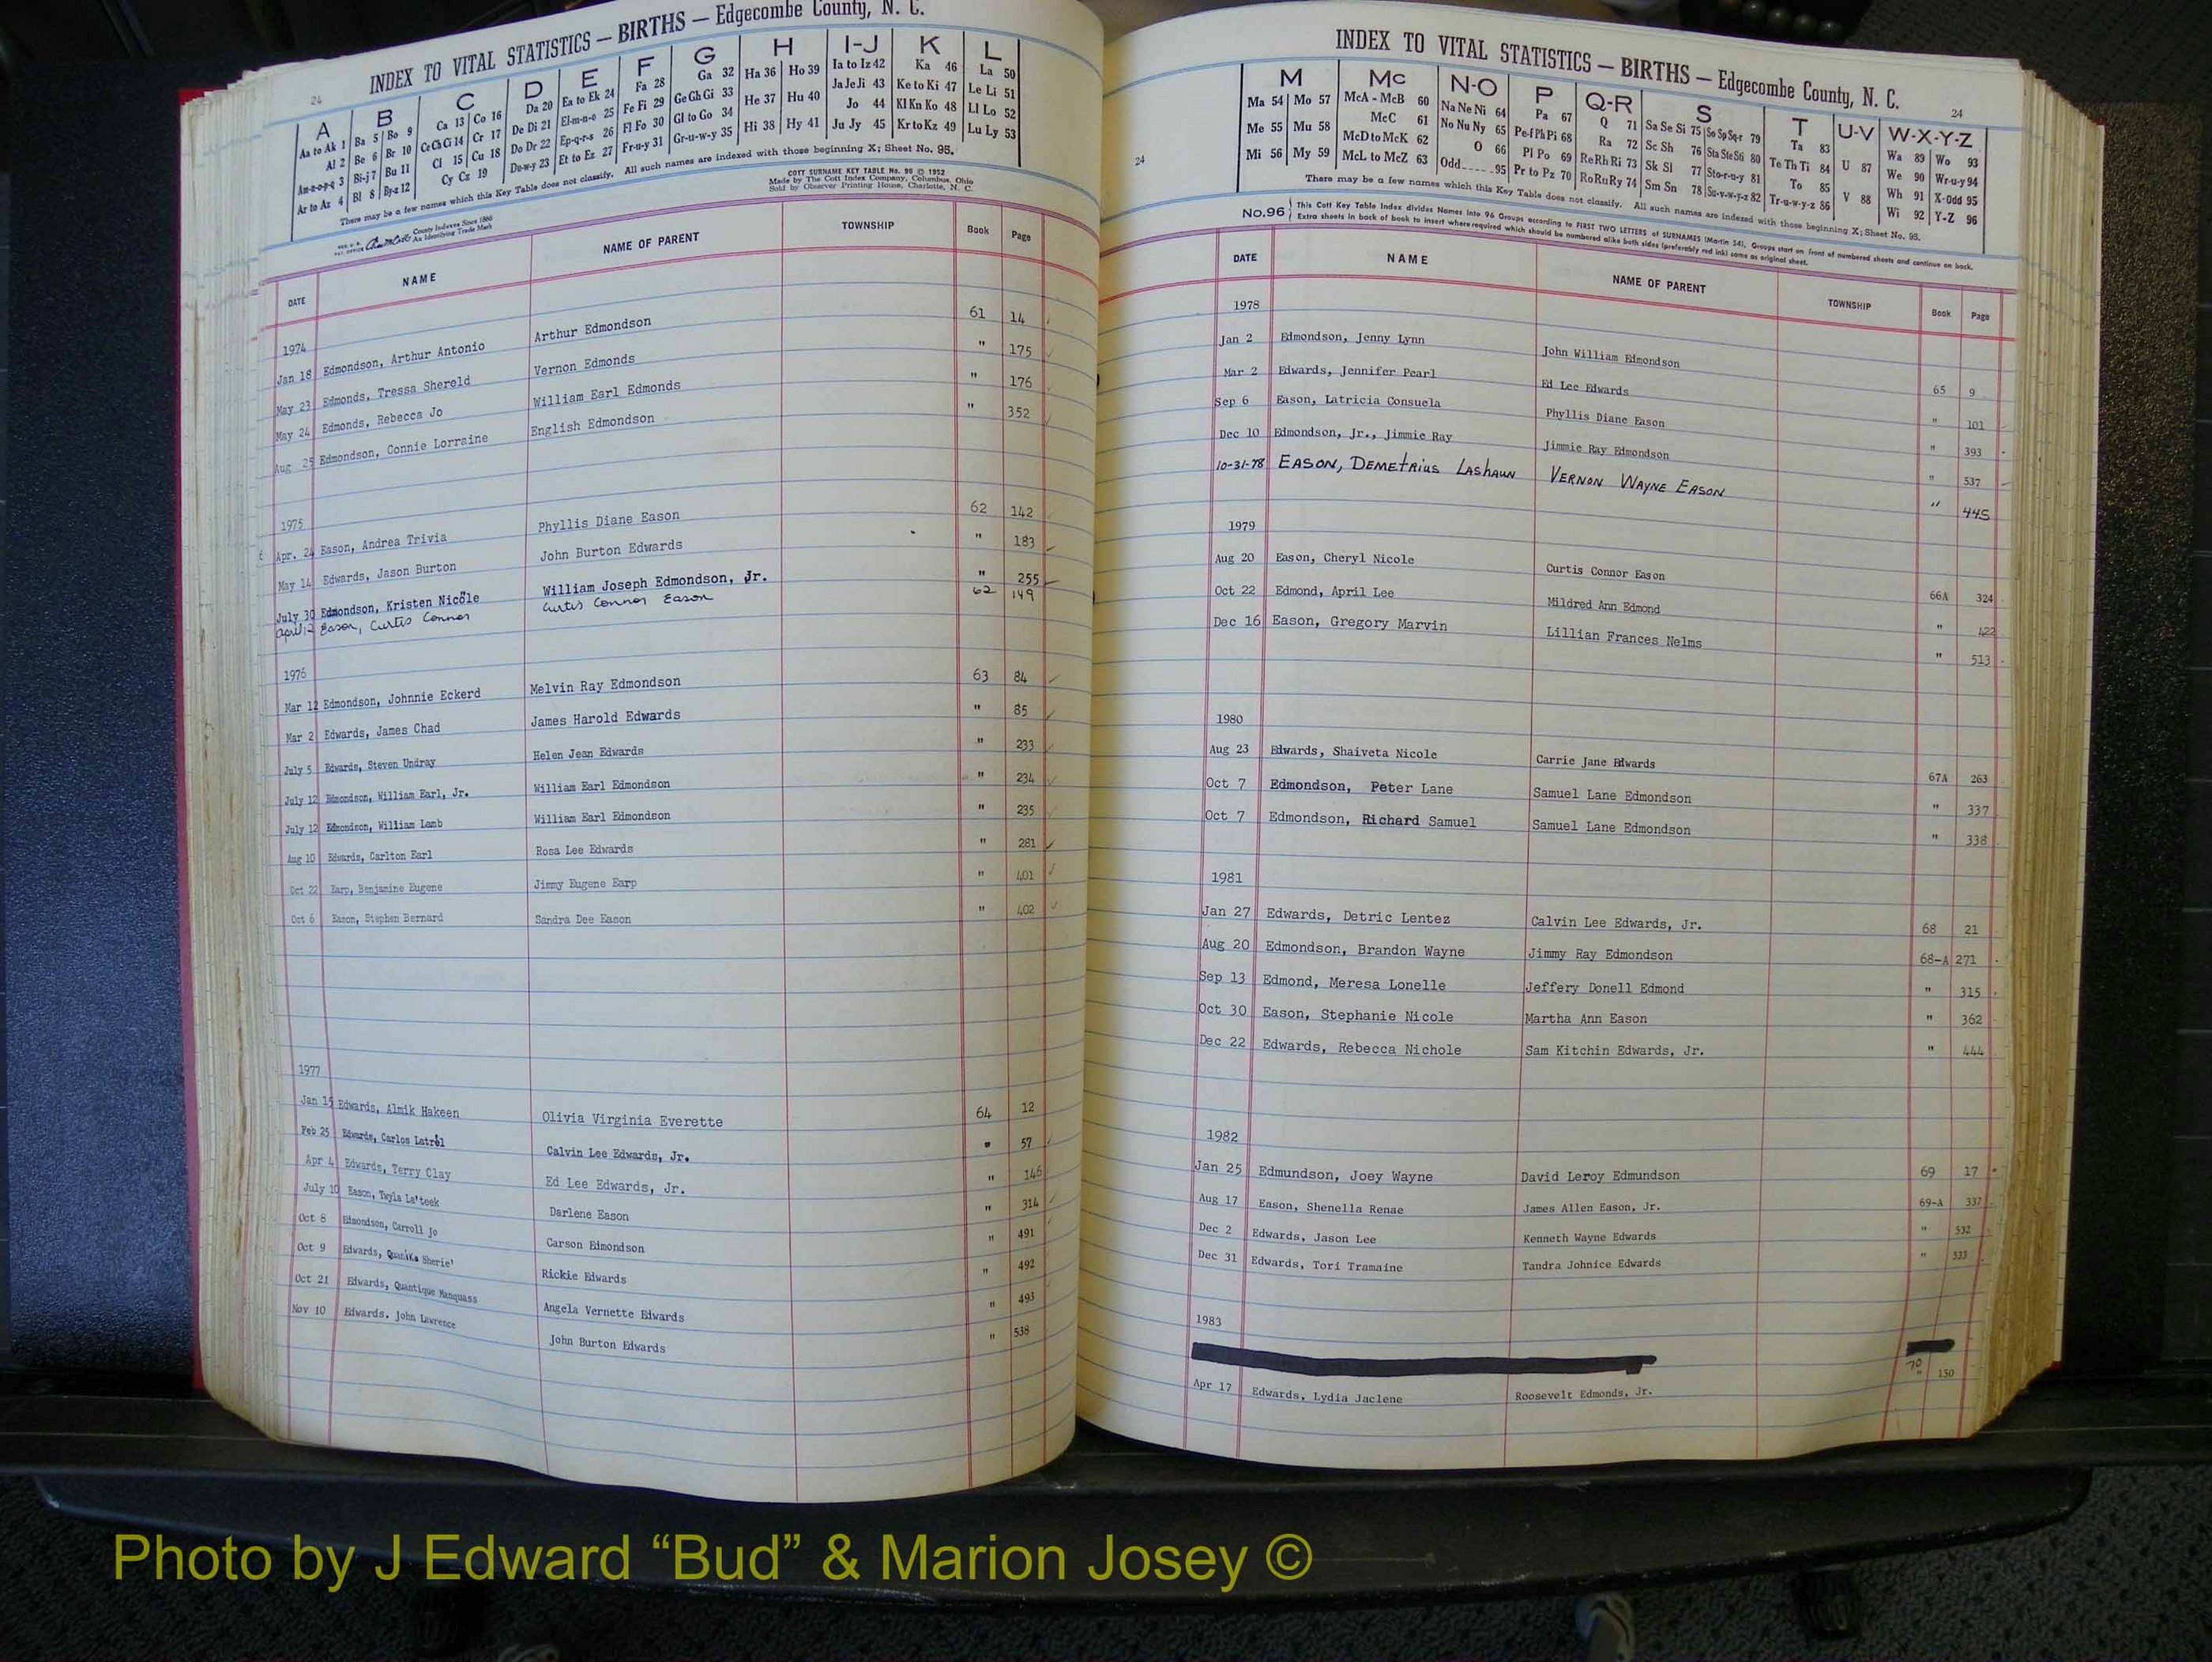 INDEX TO VITAL STATISTICS — BIRTHS — Edgecombe County, N. C.
24
A B C D E F G H I-J K L
Aa to Ak 1 Ba 5 Bo 9 Ca 13 Co 16 Da 20 Ea to Ek 24 Fa 28 Ga 32 Ha 36 Ho 39 Ia to Iz 42 Ka 46 La 50
Al 2 Be 6 Br 10 Ce Ch Ci 14 Cr 17 De Di 21 El-m-n-o 25 Fe Fi 29 Ge Gh Gi 33 He 37 Hu 40 Ja Je Ji 43 Ke to Ki 47 Le Li 51
Am-n-o-p-q 3 Bi-j 7 Bu 11 Cl 15 Cu 18 Do Dr 22 Ep-q-r-s 26 Fl Fo 30 Gl to Go 34 Hi 38 Hy 41 Jo 44 Kl Kn Ko 48 Ll Lo 52
Ar to Az 4 Bl 8 By-z 12 Cy Cz 19 Du-w-y 23 Et to Ez 27 Fr-u-y 31 Gr-u-w-y 35 Ju Jy 45 Kr to Kz 49 Lu Ly 53
There may be a few names which this Key Table does not classify. All such names are indexed with those beginning X; Sheet No. 95.
COTT SURNAME KEY TABLE No. 96 © 1952
Made by The Cott Index Company, Columbus, Ohio
Sold by Observer Printing House, Charlotte, N. C.
County Indexes Since 1888
An Identifying Trade Mark
DATE NAME NAME OF PARENT TOWNSHIP Book Page
1974
Jan 18 Edmondson, Arthur Antonio Arthur Edmondson 61 14
May 23 Edmonds, Tressa Shereld Vernon Edmonds " 175
May 24 Edmonds, Rebecca Jo William Earl Edmonds " 176
Aug 25 Edmondson, Connie Lorraine English Edmondson " 352
1975
Apr. 24 Eason, Andrea Trivia Phyllis Diane Eason 62 142
May 14 Edwards, Jason Burton John Burton Edwards " 183
July 30 Edmondson, Kristen Nicole William Joseph Edmondson, Jr. " 255
April 12 Eason, Curtis Connor Curtis Connor Eason 62 149
1976
Mar 12 Edmondson, Johnnie Eckerd Melvin Ray Edmondson 63 84
Mar 2 Edwards, James Chad James Harold Edwards " 85
July 5 Edwards, Steven Undray Helen Jean Edwards " 233
July 12 Edmondson, William Earl, Jr. William Earl Edmondson " 234
July 12 Edmondson, William Lamb William Earl Edmondson " 235
Aug 10 Edwards, Carlton Earl Rosa Lee Edwards " 281
Oct 22 Earp, Benjamine Eugene Jimmy Eugene Earp " 401
Oct 6 Eason, Stephen Bernard Sandra Dee Eason " 402
1977
Jan 15 Edwards, Almik Hakeen Olivia Virginia Everette 64 12
Feb 25 Edwards, Carlos Latrel Calvin Lee Edwards, Jr. " 57
Apr 4 Edwards, Terry Clay Ed Lee Edwards, Jr. " 146
July 10 Eason, Twyla La'teek Darlene Eason " 314
Oct 8 Edmondson, Carroll Jo Carson Edmondson " 491
Oct 9 Edwards, Quanika Sherie' Rickie Edwards " 492
Oct 21 Edwards, Quantique Manquass Angela Vernette Edwards " 493
Nov 10 Edwards. John Lawrence John Burton Edwards " 538
INDEX TO VITAL STATISTICS — BIRTHS — Edgecombe County, N. C.
24
24
M Mc N-O P Q-R S T U-V W-X-Y-Z
Ma 54 Mo 57 McA - McB 60 Na Ne Ni 64 Pa 67 Q 71 Sa Se Si 75 So Sp Sq-r 79 Ta 83 U 87 Wa 89 Wo 93
Me 55 Mu 58 McC 61 No Nu Ny 65 Pe-f Ph Pi 68 Ra 72 Sc Sh 76 Sta Ste Sti 80 Te Th Ti 84 V 88 We 90 Wr-u-y 94
Mi 56 My 59 McD to McK 62 O 66 Pl Po 69 Re Rh Ri 73 Sk Sl 77 Sto-r-u-y 81 To 85 Wh 91 X-Odd 95
McL to McZ 63 Odd 95 Pr to Pz 70 Ro Ru Ry 74 Sm Sn 78 Su-v-w-y-z 82 Tr-u-w-y-z 86 Wi 92 Y-Z 96
There may be a few names which this Key Table does not classify. All such names are indexed with those beginning X; Sheet No. 95.
No.96 This Cott Key Table Index divides Names into 96 Groups according to FIRST TWO LETTERS of SURNAMES (Martin 54). Groups start on front of numbered sheets and continue on back.
Extra sheets in back of book to insert where required which should be numbered alike both sides (preferably red ink) same as original sheet.
DATE NAME NAME OF PARENT TOWNSHIP Book Page
1978
Jan 2 Edmondson, Jenny Lynn John William Edmondson 65 9
Mar 2 Edwards, Jennifer Pearl Ed Lee Edwards " 101
Sep 6 Eason, Latricia Consuela Phyllis Diane Eason " 393
Dec 10 Edmondson, Jr., Jimmie Ray Jimmie Ray Edmondson " 537
10-31-78 EASON, DEMETRIUS LASHAUN VERNON WAYNE EASON " 445
1979
Aug 20 Eason, Cheryl Nicole Curtis Connor Eason 66A 324
Oct 22 Edmond, April Lee Mildred Ann Edmond " 422
Dec 16 Eason, Gregory Marvin Lillian Frances Nelms " 513
1980
Aug 23 Edwards, Shaiveta Nicole Carrie Jane Edwards 67A 263
Oct 7 Edmondson, Peter Lane Samuel Lane Edmondson " 337
Oct 7 Edmondson, Richard Samuel Samuel Lane Edmondson " 338
1981
Jan 27 Edwards, Detric Lentez Calvin Lee Edwards, Jr. 68 21
Aug 20 Edmondson, Brandon Wayne Jimmy Ray Edmondson 68-A 271
Sep 13 Edmond, Meresa Lonelle Jeffery Donell Edmond " 315
Oct 30 Eason, Stephanie Nicole Martha Ann Eason " 362
Dec 22 Edwards, Rebecca Nichole Sam Kitchin Edwards, Jr. " 444
1982
Jan 25 Edmundson, Joey Wayne David Leroy Edmundson 69 17
Aug 17 Eason, Shenella Renae James Allen Eason, Jr. 69-A 337
Dec 2 Edwards, Jason Lee Kenneth Wayne Edwards " 532
Dec 31 Edwards, Tori Tramaine Tandra Johnice Edwards " 533
1983
70
Apr 17 Edwards, Lydia Jaclene Roosevelt Edmonds, Jr. " 150
Photo by J Edward “Bud” & Marion Josey ©